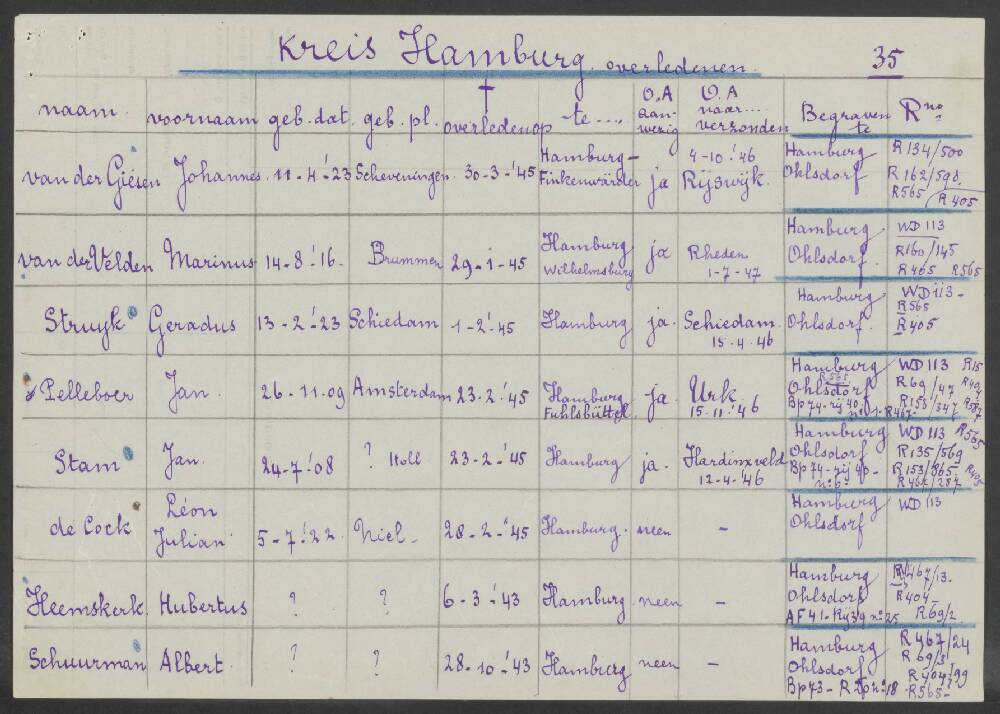 Kreis Hamburg overledenen. 35
naam. voornaam geb. dat. geb. pl. † overleden op te.... O.A aan-wezig O.A naar... verzonden Begraven te R no.
van der Giesen Johannes. 11-4-'23 Scheveningen. 30-3-'45 Hamburg-Finkenwärder ja 4-10-'46 Rijswijk. Hamburg Ohlsdorf R134/500 R162/598. R565 R405
van der Velden Marinus 14-8-'16. Brummen 29-1-45 Hamburg Wilhelmsburg ja Rheden 1-7-47 Hamburg Ohlsdorf. WD 113 R160/145 R405 R565
Struyk Geradus 13-2-'23 Schiedam 1-2-'45 Hamburg ja. Schiedam. 15-4-46 Hamburg Ohlsdorf. WD 113- R565 R405
Pelleboer Jan. 26-11-09 Amsterdam 23-2-'45 Hamburg Fuhlsbüttel. ja. Urk. 15-11-'46 Hamburg R565 Ohlsdorf Bp 74-rij 40. WD 113 R69/47 R153/347
Stam Jan. 24-7-'08 ? 23-2-'45 Hamburg ja. Hardinxveld 12-4-'46 Hamburg Ohlsdorf Bp 74-rij 40- no 6- WD 113 R565 R135/569 R153/365- R405 R467/287
de Cock Léon Julian 5-7-'22 Niel- 28-2-'45 Hamburg. neen - Hamburg Ohlsdorf WD 113
Heemskerk. Hubertus ? ? 6-3-'43 Hamburg. neen - Hamburg Ohlsdorf AF 41-Rij 39 no 25 R467/13. R404- R69/2
Schuurman Albert. ? ? 28-10-'43 Hamburg neen - Hamburg Ohlsdorf Bp 73- no 18 R467/24 R69/3 R404/99 R565-